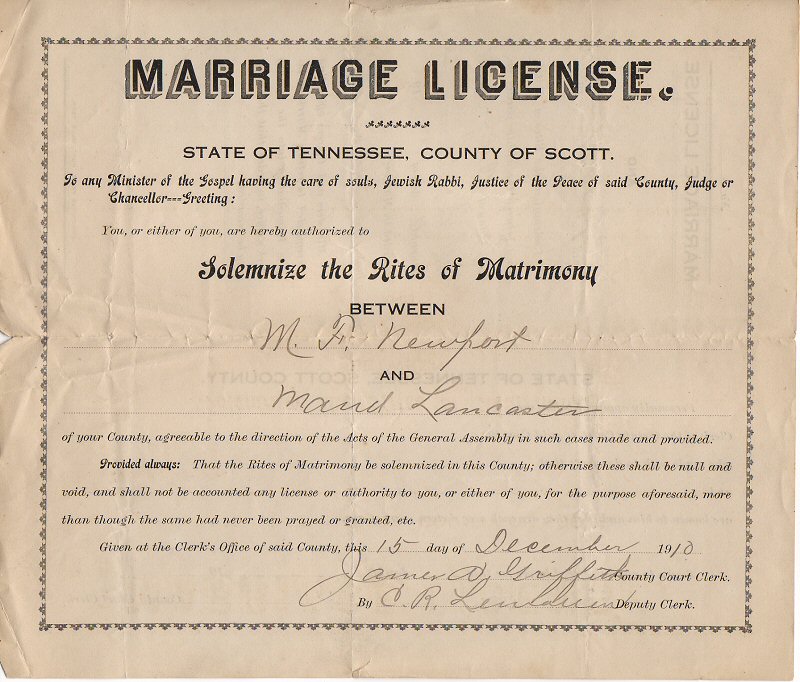 MARRIAGE LICENSE.
STATE OF TENNESSEE, COUNTY OF SCOTT.
To any Minister of the Gospel having the care of souls, Jewish Rabbi, Justice of the Peace of said County, Judge or
Chancellor---Greeting:
You, or either of you, are hereby authorized to
Solemnize the Rites of Matrimony
BETWEEN
M. F. Newport
AND
Maud Lancaster
of your County, agreeable to the direction of the Acts of the General Assembly in such cases made and provided.
Provided always: That the Rites of Matrimony be solemnized in this County; otherwise these shall be null and
void, and shall not be accounted any license or authority to you, or either of you, for the purpose aforesaid, more
than though the same had never been prayed or granted, etc.
Given at the Clerk's Office of said County, this 15 day of December 1910
James D. Griffith County Court Clerk.
By C. R. Deputy Clerk.